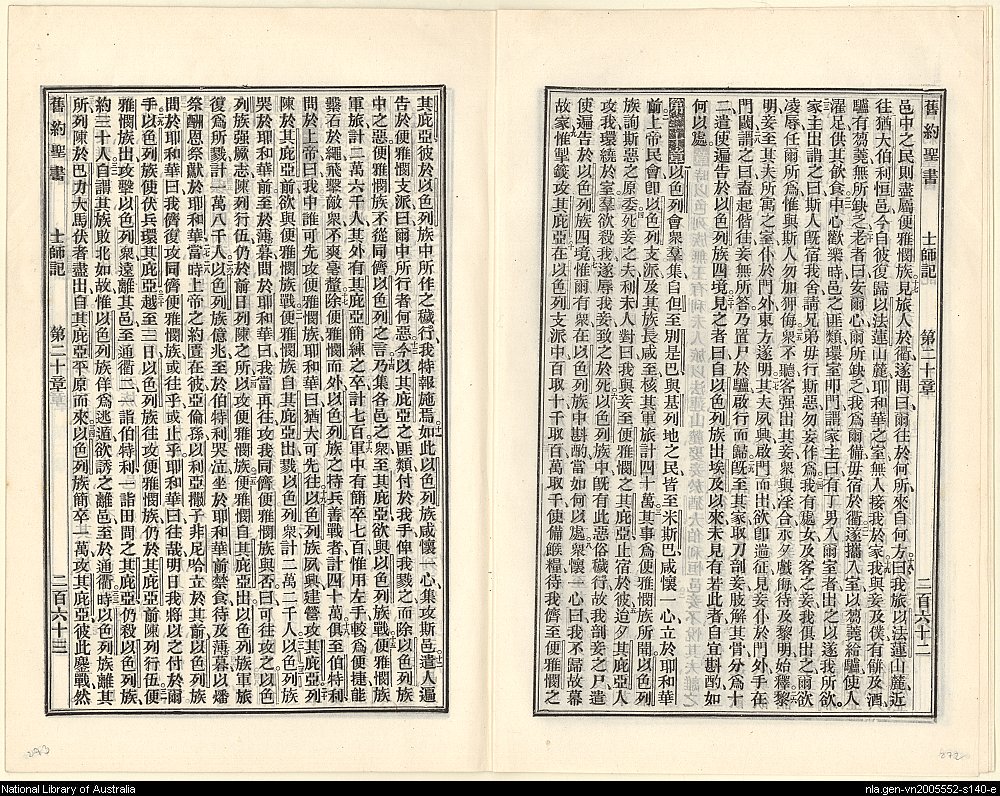 舊約聖書 士師記 第二十章 二百六十二
邑中之民則盡屬便雅憫族見旅人於衢遂問曰爾往於何所來自何方曰我旅以法蓮山麓近
往猶大伯利恒邑今自彼復歸以法蓮山麓耶和華之室無人接我於家我與妾及僕有餅及酒
驢有芻蕘無所缺乏老者曰安爾心爾所缺乏我爲爾備毋宿於衢遂攜入室以芻蕘給驢使人
濯足供其飲食中心歡樂時邑之匪類環室叩門謂家主曰有丁男入爾室者出之以遂我所欲
家主出謂之曰斯人既宿我舍請兄弟毋行斯惡勿妄作爲我有處女及客之妾我俱出之爾欲
凌辱任爾所爲惟與斯人勿加狎侮衆不聽客强出其妾衆與淫合永夕戲侮待及黎明始釋黎
明妾至其夫所寓之室仆於門外東方遂明其夫夙興啟門而出欲卽遄征見妾仆於門外手在
門閾謂之曰盍起偕往妾無所答乃置尸於驢啟行而歸既至其家取刀剖妾肢解其骨分爲十
二遣使遍告於以色列族四境見之者曰自以色列族出埃及以來未見有若此者自宜斟酌如
何以處
以色列會衆羣集自但至別是巴與基列地之民皆至米斯巴咸懷一心立於耶和華
前上帝民會卽以色列支派及其族長咸至核其軍旅計四十萬其事爲便雅憫族所聞以色列
族詢斯惡之原委死妾之夫利未人對曰我與妾至便雅憫之其庇亞止宿於彼迨夕其庇亞人
攻我環繞於室羣欲殺我遂辱我妾致之於死以色列族中既有此惡俗穢行故我剖妾之尸遣
使遍告於以色列族四境惟爾有衆在以色列族中斟酌當如何以處衆懷一心曰我不歸故幕
故家惟掣籤攻其庇亞在以色列支派中百取十千取百萬取千使備餱糧待我儕至便雅憫之
舊約聖書 士師記 第二十章 二百六十三
其庇亞彼於以色列族中所作之穢行我特報施焉如此以色列族咸懷一心集攻斯邑遣人遍
告於便雅憫支派曰爾中所行者何惡今以其庇亞之匪類付於我手俾我戮之而除以色列族
中之惡便雅憫族不從同儕以色列族之言乃集各邑之衆至其庇亞欲與以色列族戰便雅憫族
軍旅計二萬六千人其外有其庇亞簡練之卒計七百軍中有簡卒七百惟用左手較爲便捷能
繫石於繩飛擊敵衆不爽毫釐除便雅憫而外以色列族之待兵善戰者計四十萬俱至伯特利
問於上帝曰我中誰可先攻便雅憫族耶和華曰猶大可先往以色列族夙興建營攻其庇亞列
陳於其庇亞前欲與便雅憫族戰便雅憫族自其庇亞出戮以色列衆計二萬二千人以色列族
哭於耶和華前至於薄暮問於耶和華曰我當再往攻我同儕便雅憫族與否曰可往攻之以色
列族强厥志陳列行伍仍於前日列陳之所以攻便雅憫族便雅憫自其庇亞出以色列族軍旅
復爲所戮計一萬八千人以色列族億兆至於伯特利哭泣坐於耶和華前禁食待及薄暮以燔
祭酬恩祭獻於耶和華當時上帝之約匱在彼亞倫孫以利亞撒子非尼哈立於其前以色列族
問於耶和華曰我儕復攻同儕便雅憫族或往乎或止乎耶和華曰往哉明日我將以之付於爾
手以色列族使伏兵環其庇亞越至三日以色列族往攻便雅憫族仍於其庇亞前陳列行伍便
雅憫族出攻擊以色列衆遠離其邑至通衢二一詣伯特利一詣田間之其庇亞仍殺以色列族
約三十人自謂其族敗北如故惟以色列族佯爲逃遁欲誘之離邑至於通衢時以色列族離其
所列陳於巴力大馬伏者盡出自其庇亞平原而來以色列族簡卒一萬攻其庇亞彼此鏖戰然
293
292
National Library of Australia
nla.gen-vn2005552-s140-e